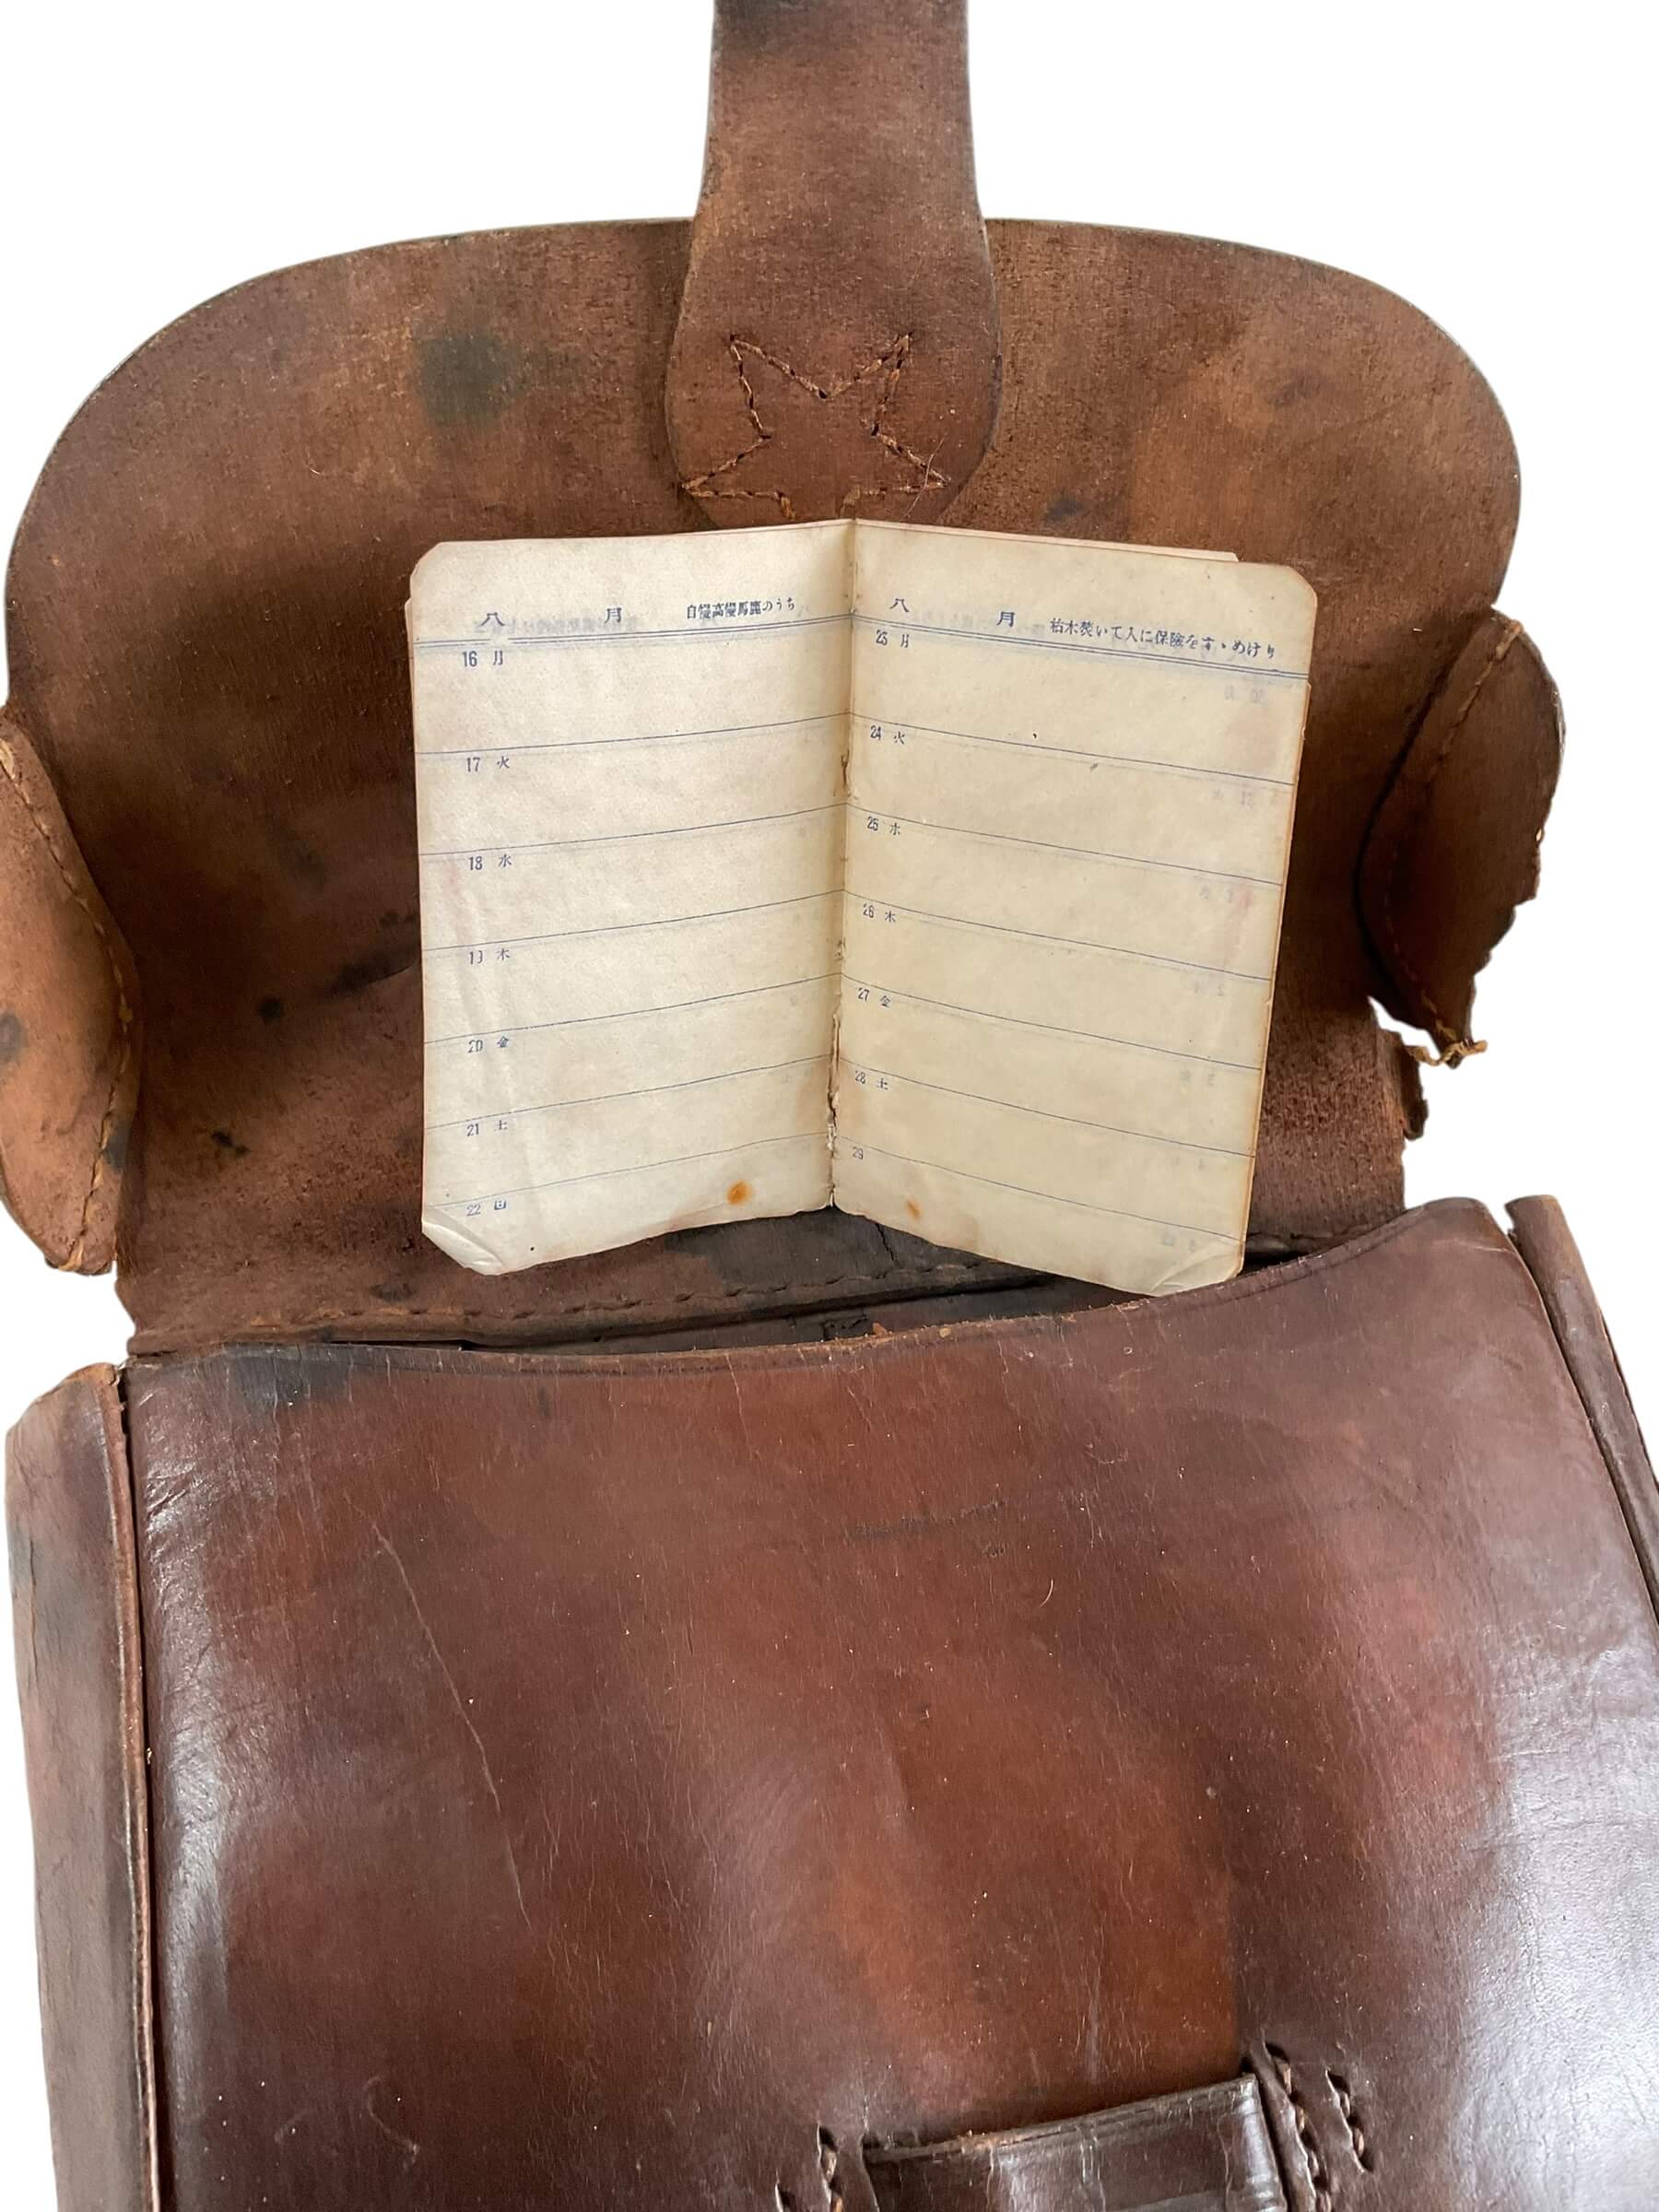 八 月 自慢高慢馬鹿のうち
16 月
17 火
18 水
19 木
20 金
21 土
22 日
八 月 枯木焚いて人に保險をすゝめけり
23 月
24 火
25 水
26 木
27 金
28 土
29